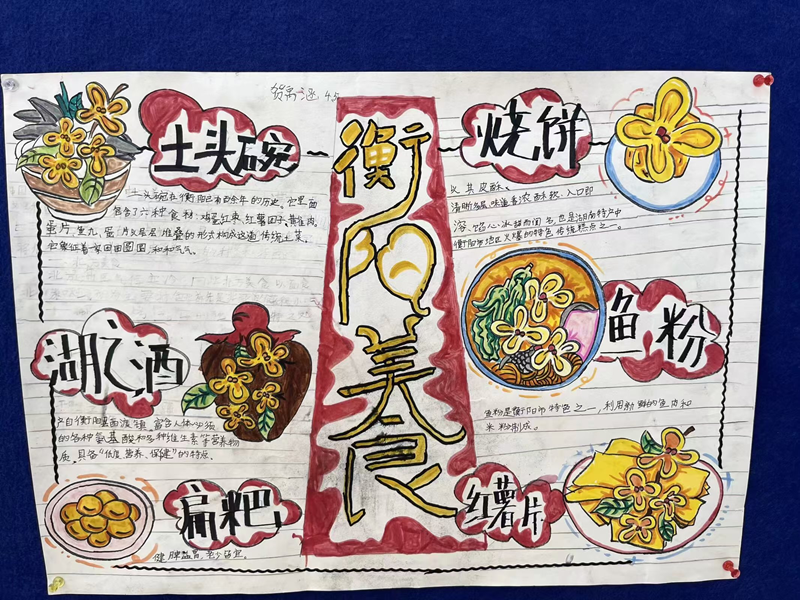 贺禹涵 45
衡阳美食
土头碗
土头碗在衡阳已有百余年的历史。它里面
包含了六种食材：鸡蛋红枣、红薯因子、黄雀肉、
蛋片、鱼丸、蛋
片头层层堆叠的形式构成这道传统土菜。
它象征着家田田圆圆、和和气气
湖之酒
产自衡阳县西渡镇，富含人体必须
的各种氨基酸和多种维生素等营养物
质，具备“低度、营养、保健”的特点。
扁粑
健脾益胃，老少皆宜。
烧饼
以其皮酥、
清晰多层、味道香浓酥软、入口即
溶、馅心冰
而闻名，也是湖南特产中
衡阳市地区火爆的特色传统糕点之一。
鱼粉
鱼粉是衡阳市特色之一，利用新鲜的鱼肉和
米粉制成。
红薯片